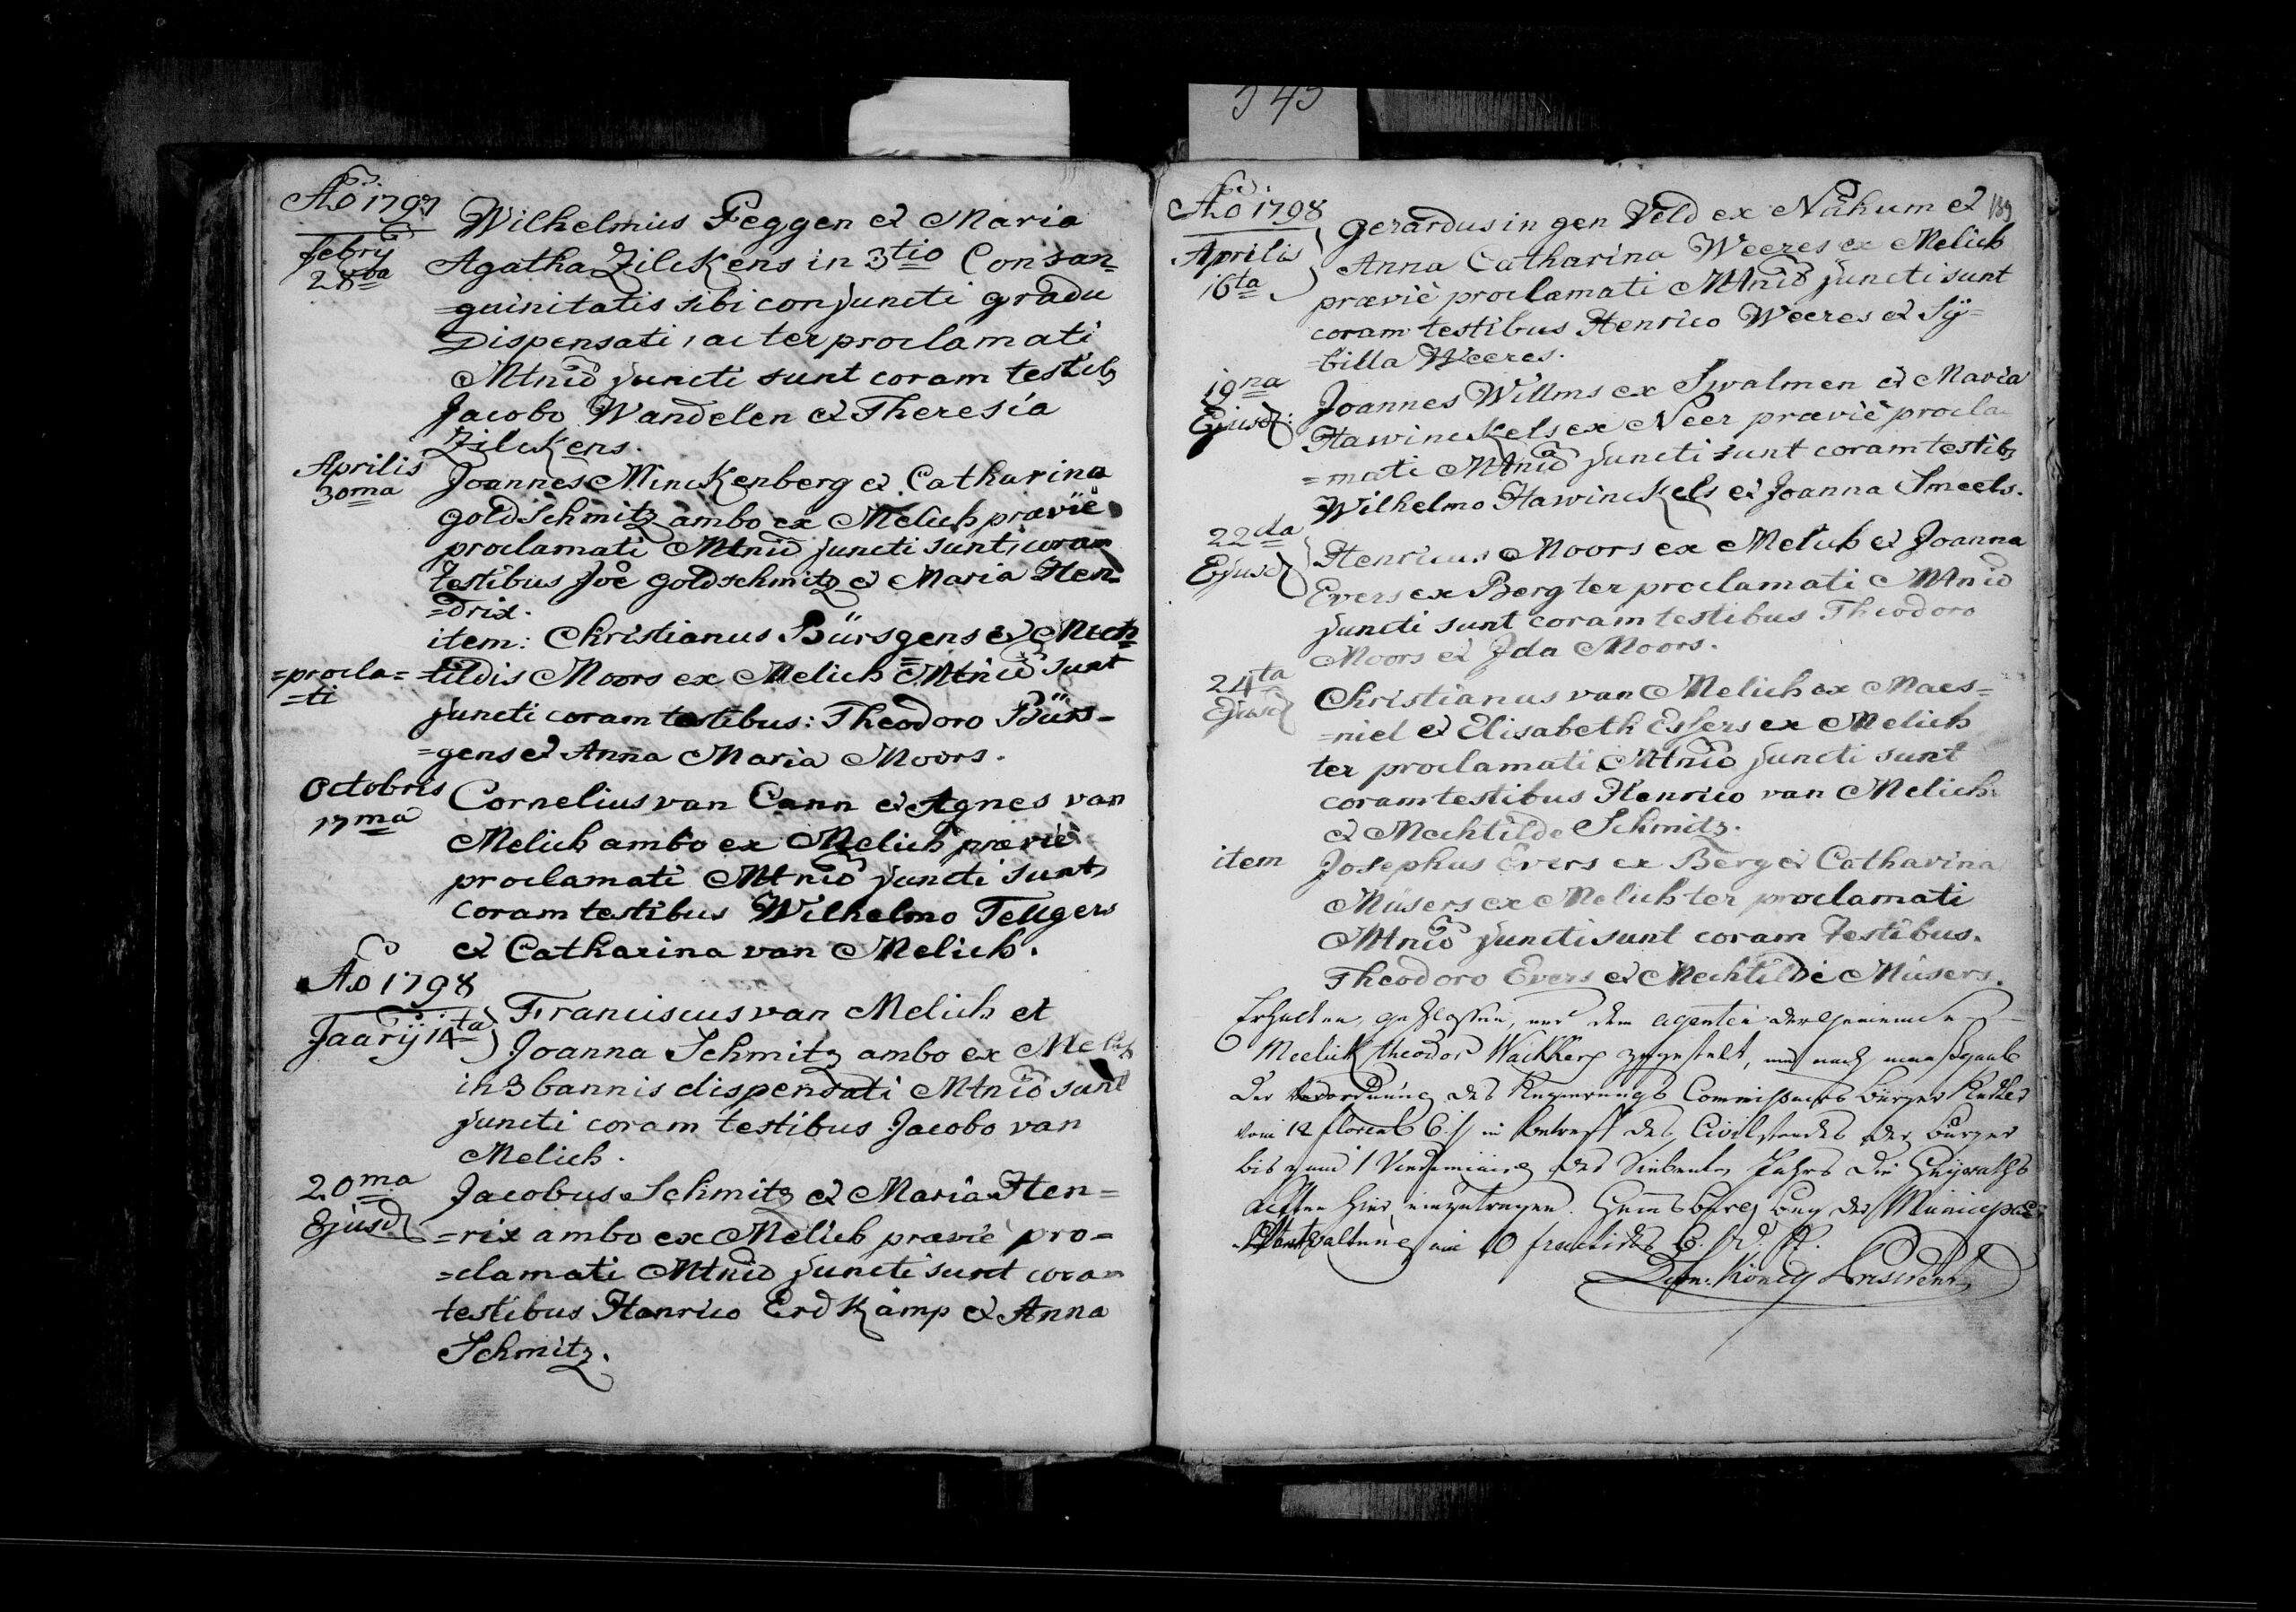 345
Aõ 1797
febrÿ
28va
Wilhelmus Feggen et Maria
Agatha Zilckens in 3tio Consan=
=guinitatis sibi conjuncti gradu
Dispensati, ac ter proclamati
Mtniõ juncti sunt coram testib9
Jacobo Wandelen et Theresia
Zilckens.
Aprilis
30ma
Joannes Minckenberg et Catharina
goldschmitz ambo ex Melich praeviè
proclamati Mtniõ juncti sunt, coram
testibus Joê goldschmitz et Maria Hen=
=drix.
item: Christianus Bürsgens et Mech=
=procla=
=ti
=tildis Moors ex Melich = Mtniõ sunt
juncti coram testibus: Theodoro Bürs=
=gens et Anna Maria Moors.
Octobris
17ma
Cornelius van Cann et Agnes van
Melich ambo ex Melich praeviè
proclamati Mtniõ juncti sunt,
coram testibus Wilhelmo Tellgers
et Catharina van Melich.
Aõ 1798
Jaarÿ 14ta
Franciscus van Melich et
Joanna Schmitz ambo ex Melich
in 3 bannis dispensati Mtniõ sunt
juncti coram testibus Jacobo van
Melich.
20ma
Ejusd
Jacobus Schmitz et Maria Hen=
=rix ambo ex Melich praeviè pro=
=clamati Mtniõ juncti sunt coram
testibus Henrico Erdkamp et Anna
Schmitz.
Aõ 1798
189
Aprilis
16ta
gerardus in gen Veld ex Nũhum et
Anna Catharina Weeres ex Melich
praeviè proclamati Mtniõ juncti sunt
coram testibus Henrico Weeres et Sÿ=
=billa Weeres.
19na
Ejusd:
Joannes Willms ex Swalmen et Maria
Hawinckels ex Neer praeviè procla
=mati Mtniõ juncti sunt coram testib9
Wilhelmo Hawinckels et Joanna Smeels.
22da
Ejusd
Henricus Moors ex Melich et Joanna
Evers ex Berg ter proclamati Mtniõ
juncti sunt coram testibus Theodoro
Moors et Ida Moors.
24ta
Ejusd
Christianus van Melich ex Maes=
=niel et Elisabeth Essers ex Melich
ter proclamati Mtniõ juncti sunt
coram testibus Henrico van Melich
et Mechtilde Schmitz.
item
Josephus Evers ex Berg et Catharina
Müsers ex Melich ter proclamati
Mtniõ juncti sunt coram testibus.
Theodoro Evers et Mechtilde Müsers.
Erhalten, geschlossen, und dem agenten der gemeinde
Meelick theodor zugestelt, und nach maasgaab
der Verordnung des Regierungs Commissairs Bürger Rudler
vom 12 floreal 6. j. in betreff des Civilstandes der Burger
bis zum 1 Vendemiaire des Siebenten Jahrs die Heyraths
acten hier einzutragen. Heinsberg bey der Municipal
Verwaltung am 10 fructidor 6. J.
König President